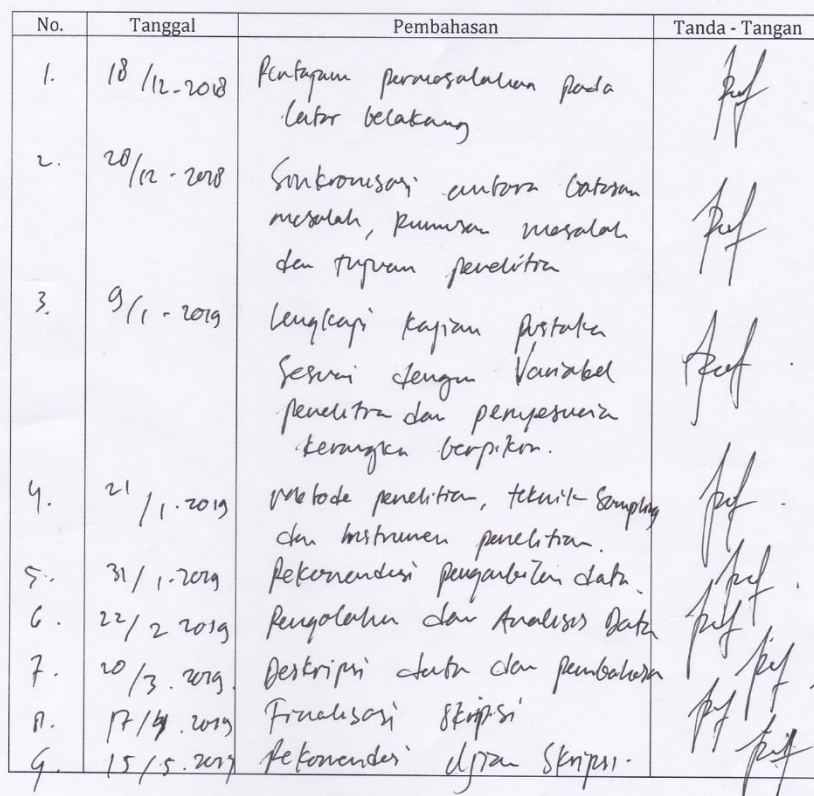 No. Tanggal Pembahasan Tanda - Tangan
1. 18/12-2018 Pentajam permasalahan pada
latar belakang
2. 28/12-2018 Sinkronisasi antara batasan
masalah, Rumusan masalah
dan tujuan penelitian
3. 9/1-2019 Lengkapi kajian pustaka
Sesuai dengan Variabel
penelitian dan penyesuaian
kerangka berpikir.
4. 21/1.2019 Metode penelitian, teknik Sampling
dan instrumen penelitian.
5. 31/1-2019 Rekomendasi pengambilan data.
6. 22/2 2019 Pengolahan dan Analisis Data
7. 20/3.2019. Deskripsi data dan pembahasan
8. 17/4.2019 Finalisasi Skripsi
9. 15/5.2019 Rekomendasi Ujian Skripsi.